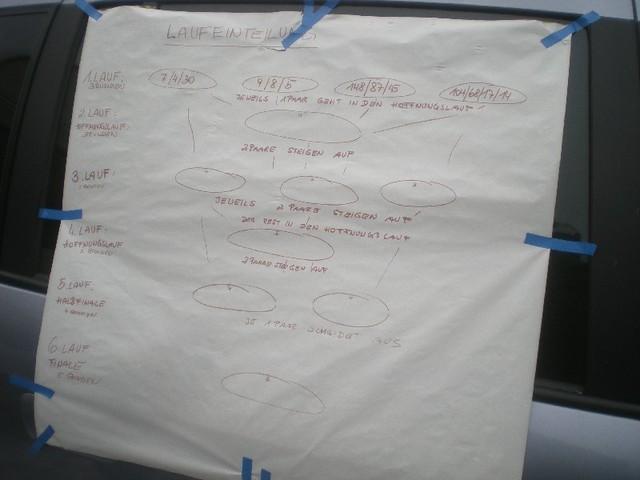 LAUFEINTEILUNG
1. LAUF:
3 RUNDEN
7/4/30
9/8/5
148/87/15
104/68/17/14
JEWEILS 1 PAAR GEHT IN DEN HOFFNUNGSLAUF!
2. LAUF:
HOFFNUNGSLAUF:
3 RUNDEN
2 PAARE STEIGEN AUF
3. LAUF:
JEWEILS 2 PAARE STEIGEN AUF!
DER REST IN DEN HOFFNUNGSLAUF
4. LAUF:
HOFFNUNGSLAUF
2 PAARE STEIGEN AUF
5. LAUF:
HALBFINALE
JE 1 PAAR SCHEIDET AUS
6. LAUF
FINALE
RUNDEN